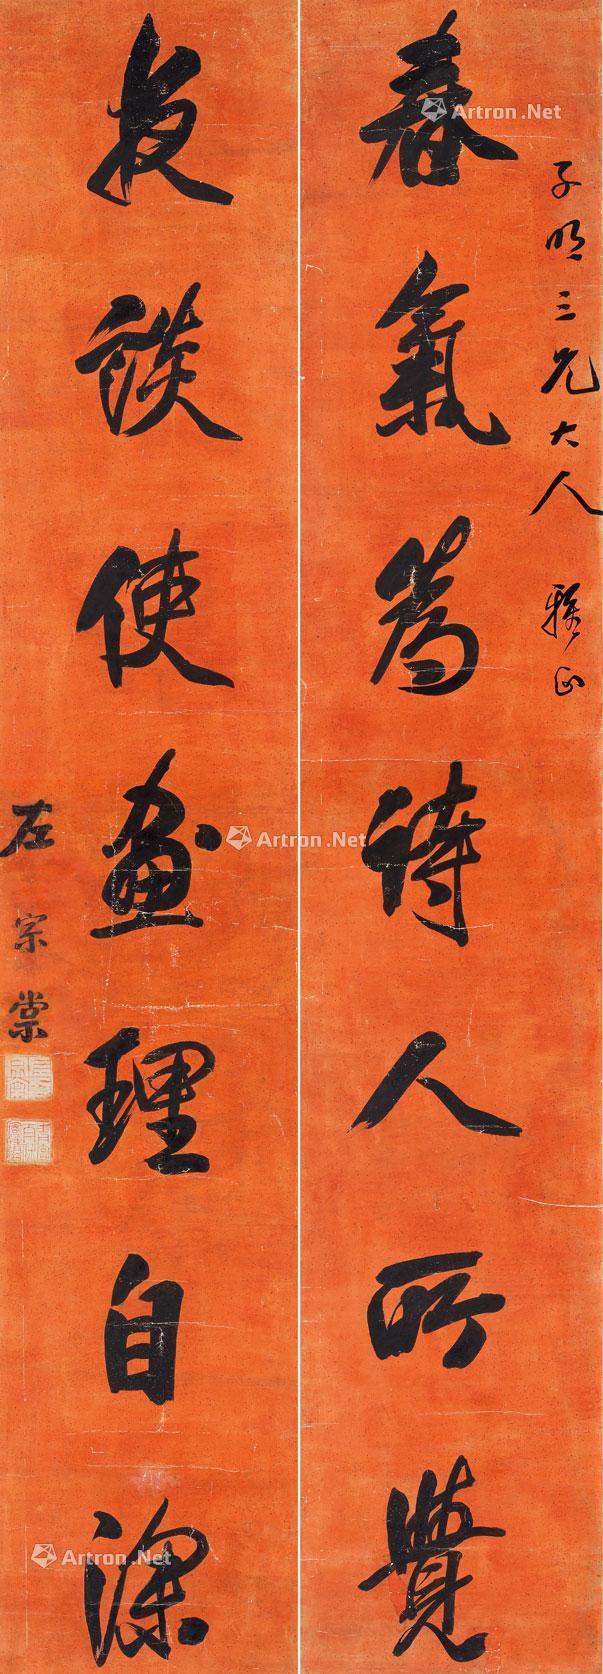 子明三兄大人 雅正
春氣為詩人所覺
夜談使畫理自深
左宗棠
Artron.Net
Artron.Net
Artron.Net